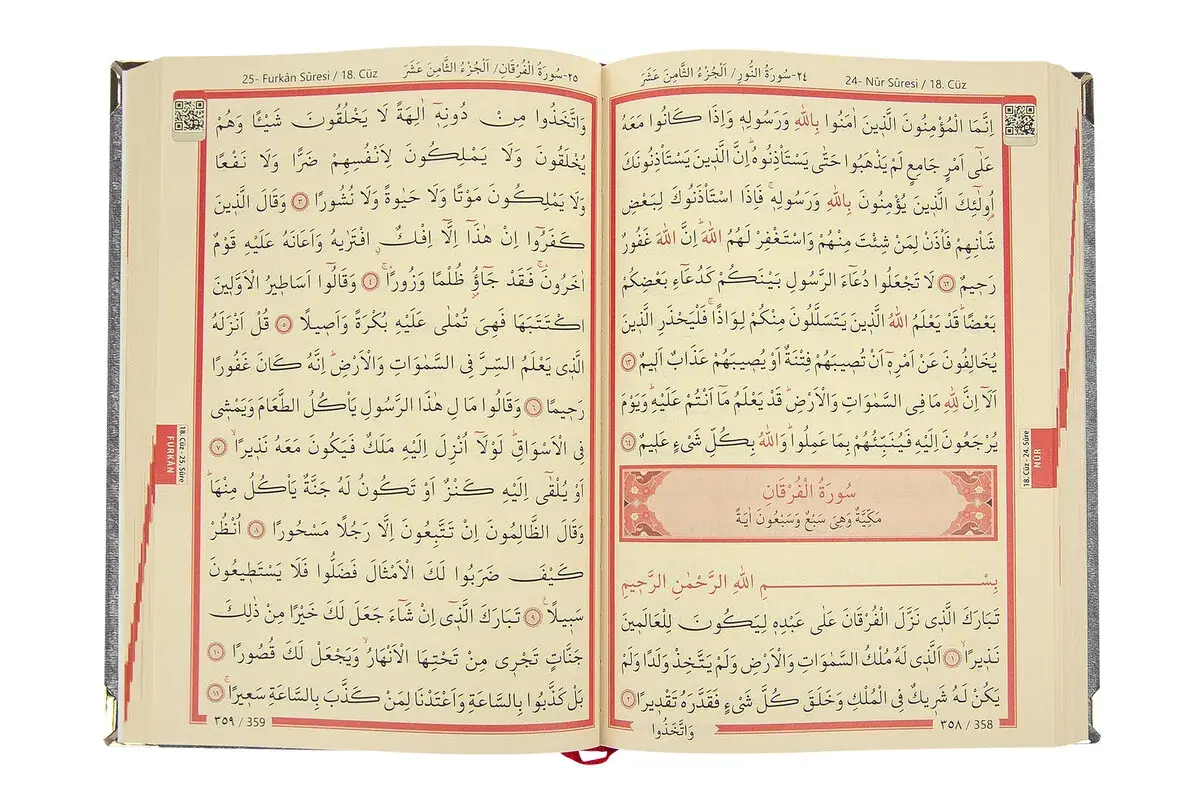 ٢٤-سُورَةُ النُّورِ/ اَلْجُزْءُ الثَّامِنَ عَشَرَ
24- Nûr Sûresi / 18. Cüz
اِنَّمَا الْمُؤْمِنُونَ الَّذ۪ينَ اٰمَنُوا بِاللّٰهِ وَرَسُولِه۪ وَاِذَا كَانُوا مَعَهُ
عَلٰٓى اَمْرٍ جَامِعٍ لَمْ يَذْهَبُوا حَتّٰى يَسْتَأْذِنُوهُۜ اِنَّ الَّذ۪ينَ يَسْتَأْذِنُونَكَ
اُو۬لٰٓئِكَ الَّذ۪ينَ يُؤْمِنُونَ بِاللّٰهِ وَرَسُولِه۪ۚ فَاِذَا اسْتَأْذَنُوكَ لِبَعْضِ
شَأْنِهِمْ فَأْذَنْ لِمَنْ شِئْتَ مِنْهُمْ وَاسْتَغْفِرْ لَهُمُ اللّٰهَۜ اِنَّ اللّٰهَ غَفُورٌ
رَح۪يمٌ ﴿٦٢﴾ لَا تَجْعَلُوا دُعَٓاءَ الرَّسُولِ بَيْنَكُمْ كَدُعَٓاءِ بَعْضِكُمْ
بَعْضًاۜ قَدْ يَعْلَمُ اللّٰهُ الَّذ۪ينَ يَتَسَلَّلُونَ مِنْكُمْ لِوَاذًاۚ فَلْيَحْذَرِ الَّذ۪ينَ
يُخَالِفُونَ عَنْ اَمْرِه۪ٓ اَنْ تُص۪يبَهُمْ فِتْنَةٌ اَوْ يُص۪يبَهُمْ عَذَابٌ اَل۪يمٌ ﴿٦٣﴾
اَلَٓا اِنَّ لِلّٰهِ مَا فِي السَّمٰوَاتِ وَالْاَرْضِۜ قَدْ يَعْلَمُ مَٓا اَنْتُمْ عَلَيْهِۜ وَيَوْمَ
يُرْجَعُونَ اِلَيْهِ فَيُنَبِّئُهُمْ بِمَا عَمِلُواۜ وَاللّٰهُ بِكُلِّ شَيْءٍ عَل۪يمٌ ﴿٦٤﴾
سُورَةُ الْفُرْقَانِ
مَكِّيَّةٌ وَهِيَ سَبْعٌ وَسَبْعُونَ اٰيَةً
بِسْمِ اللّٰهِ الرَّحْمٰنِ الرَّح۪يمِ
تَبَارَكَ الَّذ۪ي نَزَّلَ الْفُرْقَانَ عَلٰى عَبْدِه۪ لِيَكُونَ لِلْعَالَم۪ينَ
نَذ۪يرًاۙ ﴿١﴾ اَلَّذ۪ي لَهُ مُلْكُ السَّمٰوَاتِ وَالْاَرْضِ وَلَمْ يَتَّخِذْ وَلَدًا وَلَمْ
يَكُنْ لَهُ شَر۪يكٌ فِي الْمُلْكِ وَخَلَقَ كُلَّ شَيْءٍ فَقَدَّرَهُ تَقْد۪يرًا ﴿٢﴾
وَاتَّخَذُوا
٣٥٨ / 358
18. Cüz - 24. Sûre
NÛR
٢٥-سُورَةُ الْفُرْقَانِ/ اَلْجُزْءُ الثَّامِنَ عَشَرَ
25- Furkân Sûresi / 18. Cüz
وَاتَّخَذُوا مِنْ دُونِه۪ٓ اٰلِهَةً لَا يَخْلُقُونَ شَيْـًٔا وَهُمْ
يُخْلَقُونَ وَلَا يَمْلِكُونَ لِاَنْفُسِهِمْ ضَرًّا وَلَا نَفْعًا
وَلَا يَمْلِكُونَ مَوْتًا وَلَا حَيٰوةً وَلَا نُشُورًا ﴿٣﴾ وَقَالَ الَّذ۪ينَ
كَفَرُٓوا اِنْ هٰذَٓا اِلَّٓا اِفْكٌۨ افْتَرٰيهُ وَاَعَانَهُ عَلَيْهِ قَوْمٌ
اٰخَرُونَۚ فَقَدْ جَٓاؤُ۫ ظُلْمًا وَزُورًاۚ ﴿٤﴾ وَقَالُٓوا اَسَاط۪يرُ الْاَوَّل۪ينَ
اكْتَتَبَهَا فَهِيَ تُمْلٰى عَلَيْهِ بُكْرَةً وَاَص۪يلًا ﴿٥﴾ قُلْ اَنْزَلَهُ
الَّذ۪ي يَعْلَمُ السِّرَّ فِي السَّمٰوَاتِ وَالْاَرْضِۜ اِنَّهُ كَانَ غَفُورًا
رَح۪يمًا ﴿٦﴾ وَقَالُوا مَالِ هٰذَا الرَّسُولِ يَأْكُلُ الطَّعَامَ وَيَمْش۪ي
فِي الْاَسْوَاقِۜ لَوْلَٓا اُنْزِلَ اِلَيْهِ مَلَكٌ فَيَكُونَ مَعَهُ نَذ۪يرًاۙ ﴿٧﴾
اَوْ يُلْقٰٓى اِلَيْهِ كَنْزٌ اَوْ تَكُونُ لَهُ جَنَّةٌ يَأْكُلُ مِنْهَاۜ
وَقَالَ الظَّالِمُونَ اِنْ تَتَّبِعُونَ اِلَّا رَجُلًا مَسْحُورًا ﴿٨﴾ اُنْظُرْ
كَيْفَ ضَرَبُوا لَكَ الْاَمْثَالَ فَضَلُّوا فَلَا يَسْتَط۪يعُونَ
سَب۪يلًا۟ ﴿٩﴾ تَبَارَكَ الَّذ۪ٓي اِنْ شَٓاءَ جَعَلَ لَكَ خَيْرًا مِنْ ذٰلِكَ
جَنَّاتٍ تَجْر۪ي مِنْ تَحْتِهَا الْاَنْهَارُۙ وَيَجْعَلْ لَكَ قُصُورًا ﴿١٠﴾
بَلْ كَذَّبُوا بِالسَّاعَةِ وَاَعْتَدْنَا لِمَنْ كَذَّبَ بِالسَّاعَةِ سَع۪يرًاۚ ﴿١١﴾
٣٥٩ / 359
18. Cüz - 25. Sûre
FURKÂN